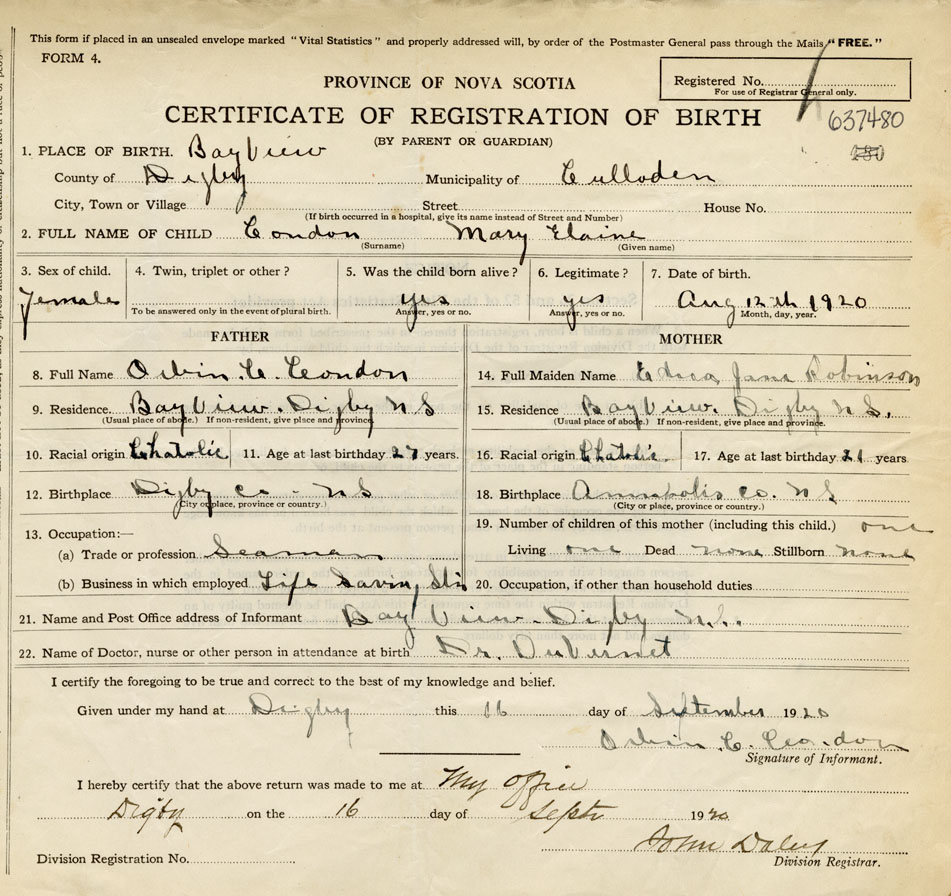 This form if placed in an unsealed envelope marked "Vital Statistics" and properly addressed will, by order of the Postmaster General pass through the Mails "FREE."
FORM 4.
Registered No.
For use of Registrar General only.
PROVINCE OF NOVA SCOTIA
CERTIFICATE OF REGISTRATION OF BIRTH
637480
(BY PARENT OR GUARDIAN)
1. PLACE OF BIRTH. Bay View
County of Digby Municipality of Culloden
City, Town or Village Street House No.
(If birth occurred in a hospital, give its name instead of Street and Number)
2. FULL NAME OF CHILD Condon Mary Elaine
(Surname) (Given name)
3. Sex of child. 4. Twin, triplet or other? 5. Was the child born alive? 6. Legitimate? 7. Date of birth.
Female yes yes Aug 12th 1920
To be answered only in the event of plural birth. Answer, yes or no. Answer, yes or no. Month, day, year.
FATHER
8. Full Name Orbin C. Condon
9. Residence. Bay View. Digby N S
(Usual place of abode.) If non-resident, give place and province.
10. Racial origin Chatolic 11. Age at last birthday 27 years.
12. Birthplace Digby co - N S
(City or place, province or country.)
13. Occupation:—
(a) Trade or profession Seaman
(b) Business in which employed Life Saving Stn
MOTHER
14. Full Maiden Name Jane Robinson
15. Residence Bay View. Digby N S.
(Usual place of abode.) If non-resident, give place and province.
16. Racial origin Chatolic. 17. Age at last birthday 21 years
18. Birthplace Annapolis co. N S
(City or place, province or country.)
19. Number of children of this mother (including this child.) one
Living one Dead none Stillborn none
20. Occupation, if other than household duties
21. Name and Post Office address of Informant Bay View - Digby N.S.
22. Name of Doctor, nurse or other person in attendance at birth Dr. DuVernet
I certify the foregoing to be true and correct to the best of my knowledge and belief.
Given under my hand at Digby this 16 day of September 1920
Orbin C. Condon
Signature of Informant.
I hereby certify that the above return was made to me at My office
Digby on the 16 day of Septr 1920
John Daley
Division Registrar.
Division Registration No.